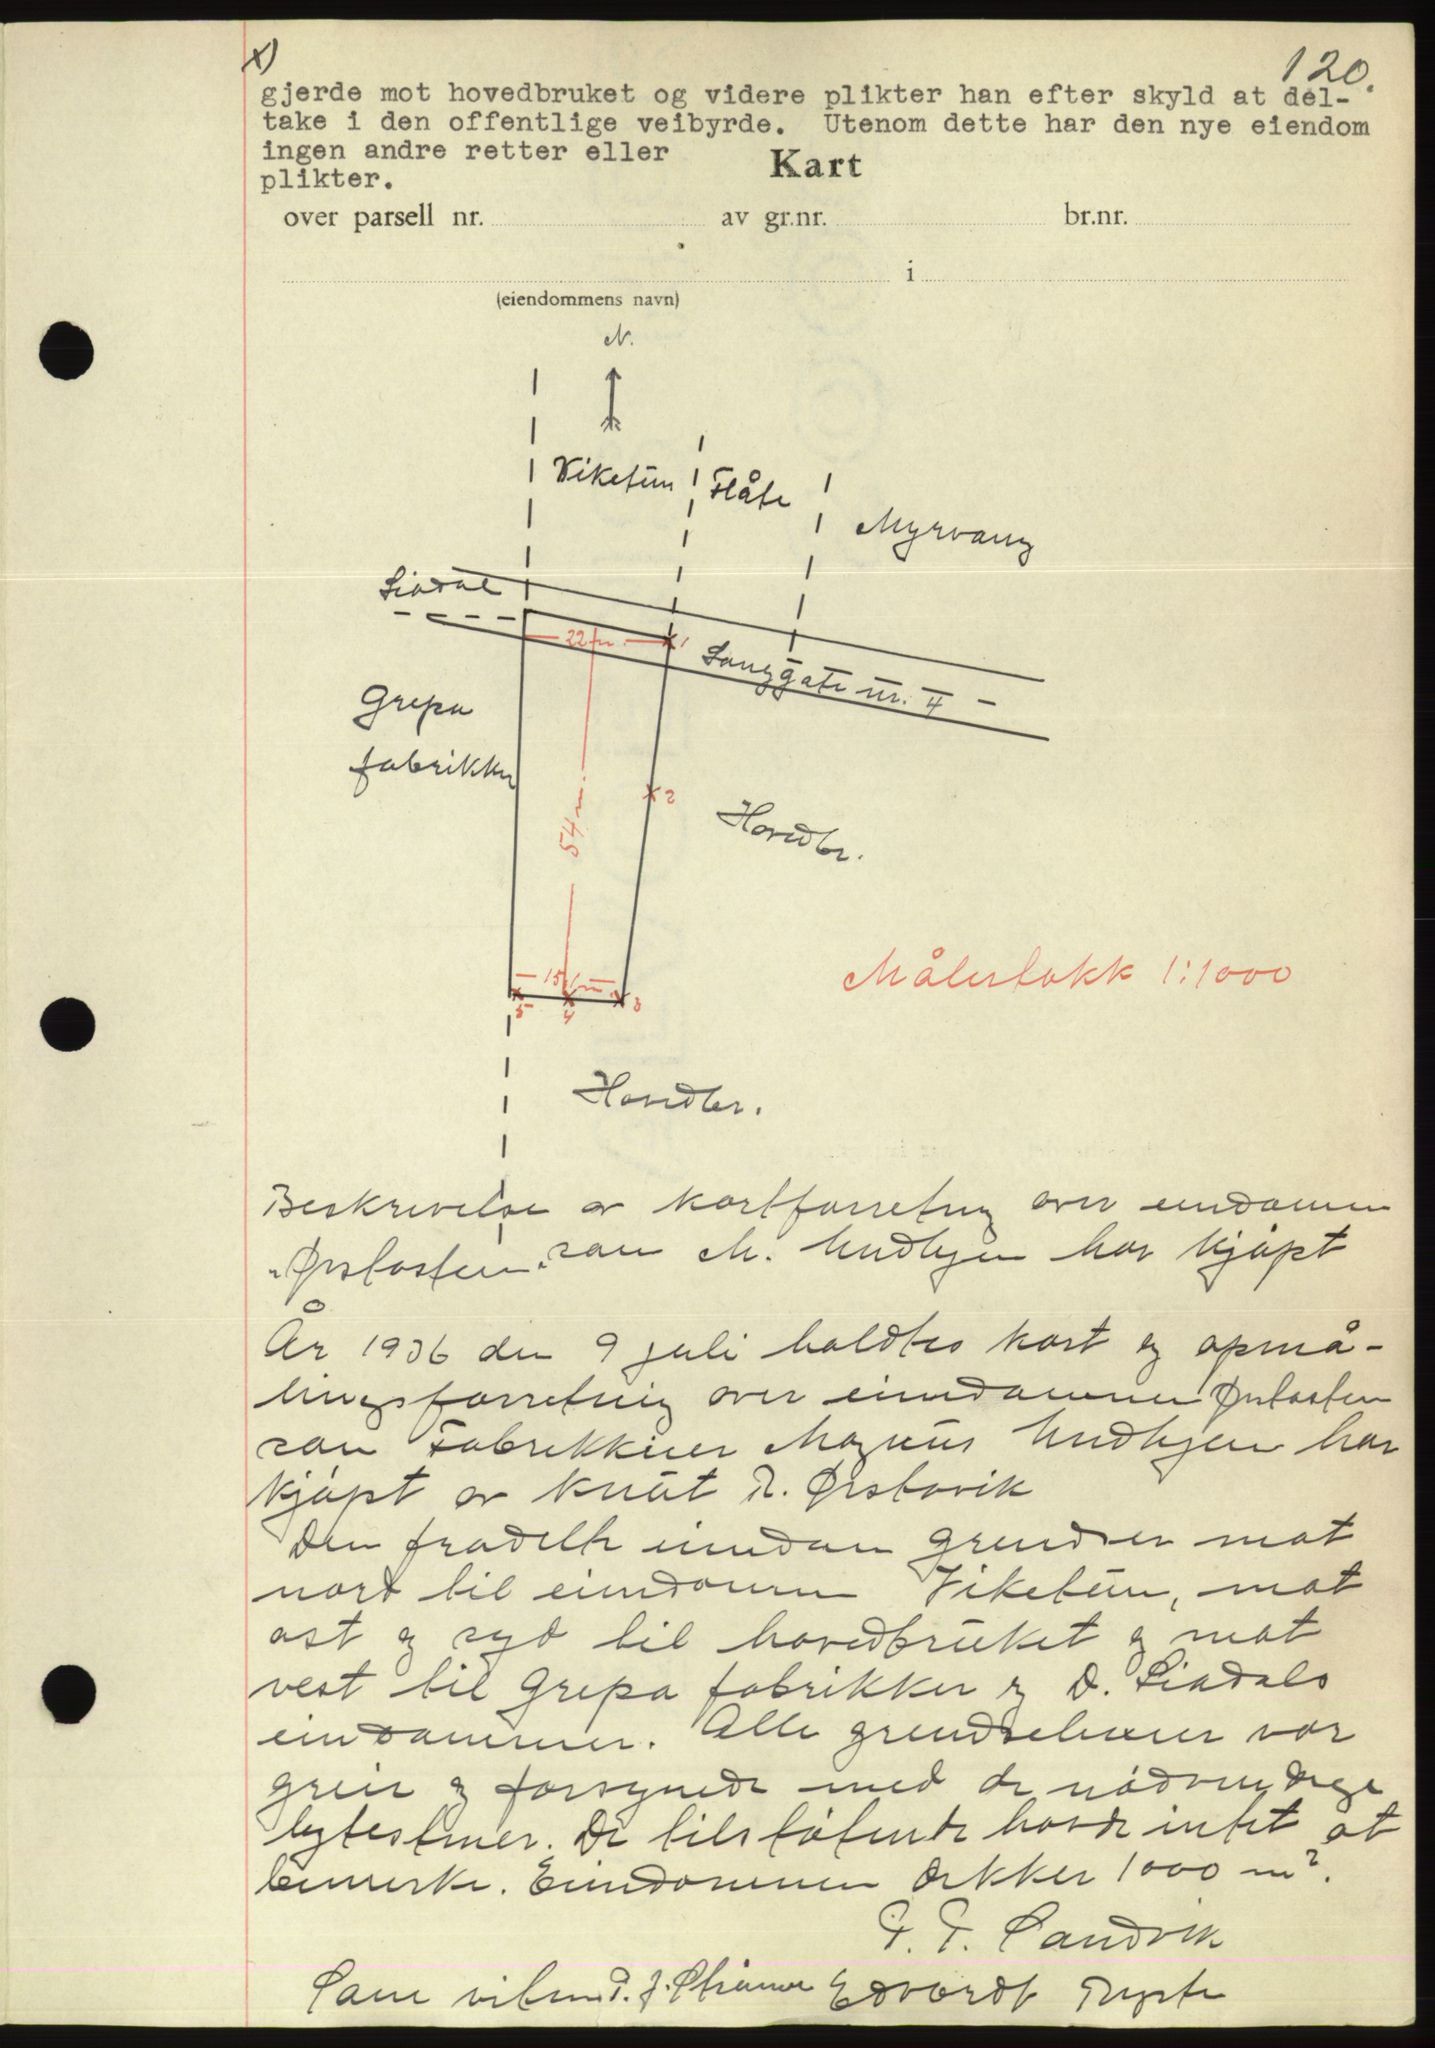 x)
120.
gjerde mot hovedbruket og videre plikter han efter skyld at del-
take i den offentlige veibyrde. Utenom dette har den nye eiendom
ingen andre retter eller
plikter.
Kart
over parsell nr. av gr.nr. br.nr.
i
(eiendommens navn)
N.
Viketun Flåte
Myrvang
Liadal
22 m. 1
Langgate nr. 4
Grepa
fabrikker
2
54 m.
Hovedbr.
Målestokk 1:1000
15 m.
5 4 3
Hovedbr.
Beskrivelse av kartforretning over eiendommen
som M. har kjøpt
År 1936 den 9 juli holdtes kart og opmå-
lingsforretning over eiendommen
som Fabrikkeier Magnus har
kjøpt av Knut R. Ørstavik
Den fradelte eiendom grenser mot
nord til eiendommen Viketun, mot
øst og syd til hovedbruket og mot
vest til Grepa fabrikker og D. Liadals
eiendommer. Alle var
greie og forsynede med de nødvendige
bytestener. De tilstøtende havde intet at
bemerke. Eiendommen dekker 1000 m².
P. P. Sandvik
Som vitne P. J. Edvardt